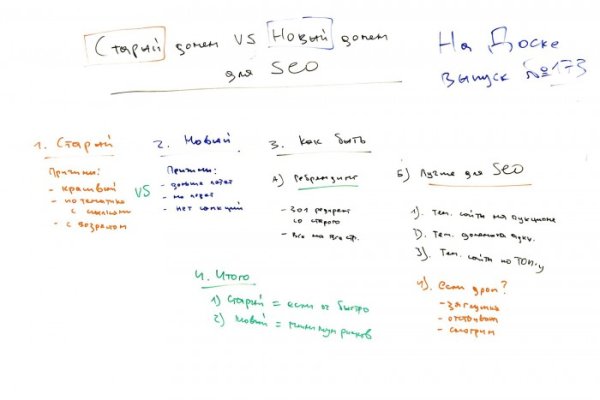 Старый домен VS Новый домен
для SEO
На Доске
выпуск №173
1. Старый
Причины:
- красивый
- по тематике
с ссылками
- с возрастом
VS
2. Новый
Причины:
- дольше
- нет санкций
3. Как быть
А) Ребрендинг
- 301 редирект
со старого
- Все на все стр.
Б) Лучше для SEO
1). Тем. сайты на аукционе
2). Тем. домена
3). Тем. сайты по ТОП-у
4). если дроп?
- загрузка
- отстаиваем
- смотрим
4. Итого
1) Старый = если оч быстро
2) Новый = минимум рисков